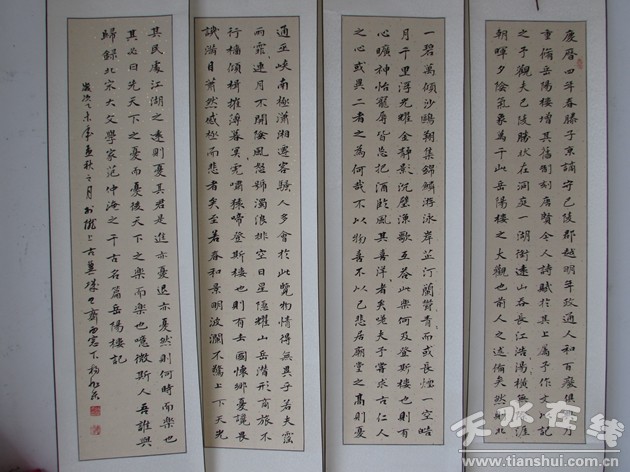 慶曆四年春滕子京謫守巴陵郡越明年政通人和百廢俱興乃
重脩岳陽樓增其舊制刻唐賢今人詩賦於其上屬予作文以記
之予觀夫巴陵勝狀在洞庭一湖銜遠山吞長江浩浩湯湯橫無際涯
朝暉夕陰氣象萬千此岳陽樓之大觀也前人之述備矣然則北
一碧萬頃沙鷗翔集錦鱗游泳岸芷汀蘭鬱鬱青青而或長煙一空皓
月千里浮光耀金靜影沉璧漁歌互答此樂何及登斯樓也則有
心曠神怡寵辱皆忘把酒臨風其喜洋洋者矣嗟夫予嘗求古仁人
之心或異二者之為何哉不以物喜不以己悲居廟堂之高則憂
通巫峽南極瀟湘遷客騷人多會於此覽物情得無異乎若夫霪
雨霏霏連月不開陰風怒號濁浪排空日星隱耀山岳潛形商旅不
行檣傾楫摧薄暮冥冥虎嘯猿啼登斯樓也則有去國懷鄉憂讒畏
譏滿目蕭然感極而悲者矣至若春和景明波瀾不驚上下天光
其民處江湖之遠則憂其君是進亦憂退亦憂然則何時而樂也
其必曰先天下之憂而憂後天下之樂而樂也噫微斯人吾誰與
歸錄北宋大文學家范仲淹之千古名篇岳陽樓記
歲次乙未年孟秋之月於隴上古冀
天水在线
www.tianshui.com.cn